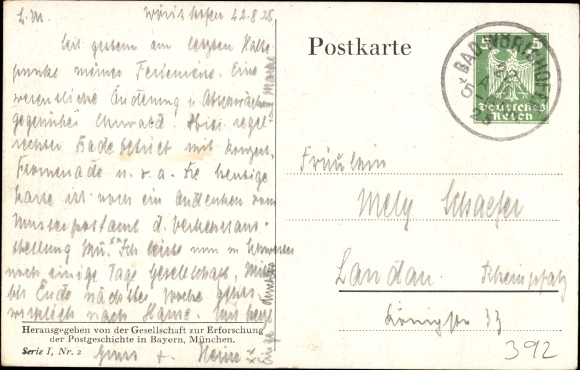 L. M. Wörishofen 22.8.25
Seit gestern am letzten Halte
punkte meiner Ferienreise. Eine
wesentliche Änderung u. Abwechslung
gegenüber Hier regel
rechter Badebetrieb mit Konzert,
Promenade u. s. a. Die heutige
Karte ist noch ein Andenken vom
Musterpostamt d. Verkehrsaus-
stellung Mü. Ich leiste nun
noch einige Tage Gesellschaft,
bis Ende nächster Woche geht's
wirklich nach Hause.
Gruss
Herausgegeben von der Gesellschaft zur Erforschung
der Postgeschichte in Bayern, München.
Serie I, Nr. 2
Postkarte
5 5
Deutsches
Reich
BAD WÖRISHOFEN
Fräulein
Mely Schaefer
Landau. Rheinpfalz
Königstr 33
392